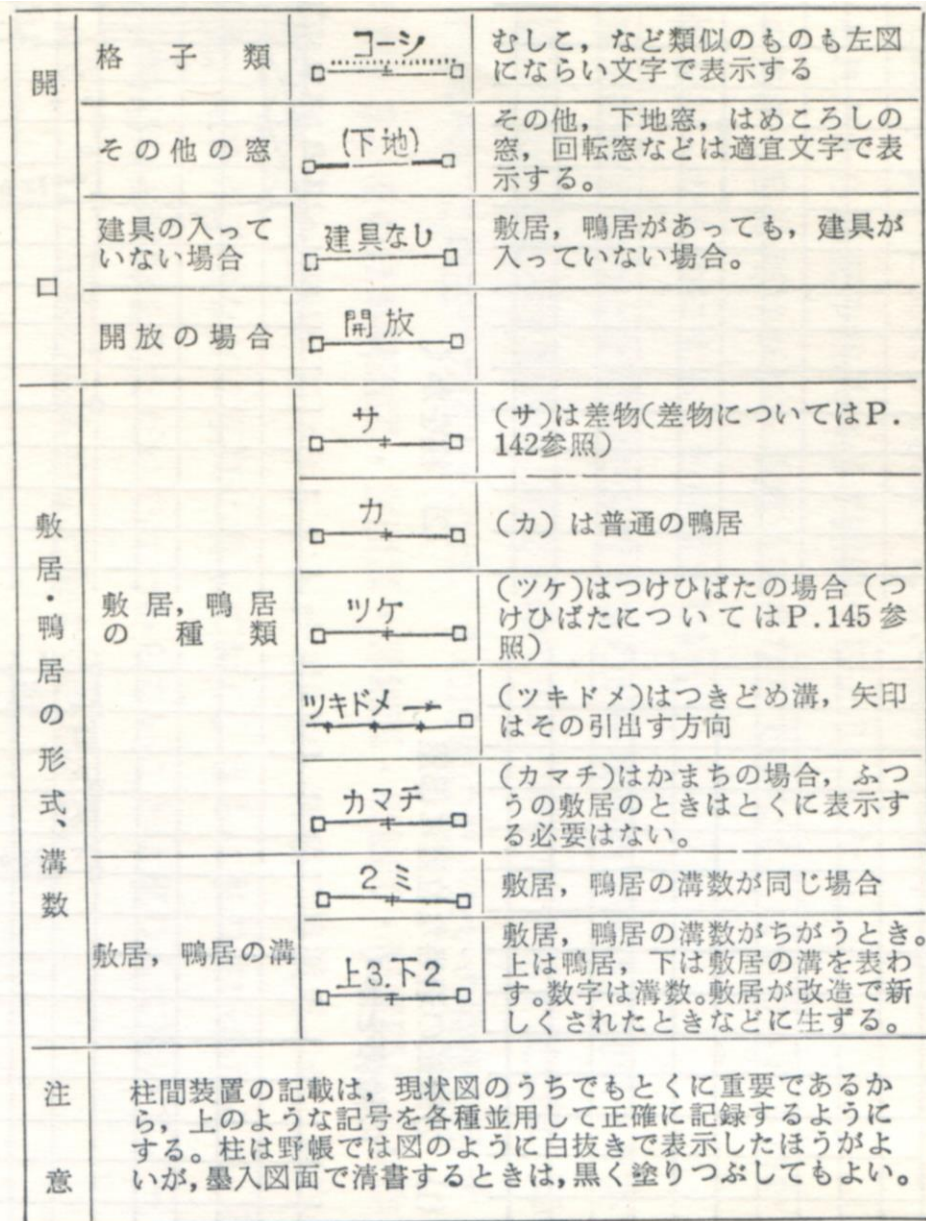 開口
格子類
コーシ
むしこ，など類似のものも左図
にならい文字で表示する
その他の窓
(下地)
その他，下地窓，はめころしの
窓，回転窓などは適宜文字で表
示する。
建具の入って
いない場合
建具なし
敷居，鴨居があっても，建具が
入っていない場合。
開放の場合
開放
敷居・鴨居の形式、溝数
敷居，鴨居
の種類
サ
(サ)は差物(差物についてはP.
142参照)
カ
(カ) は普通の鴨居
ツケ
(ツケ)はつけひばたの場合 (つ
けひばたについてはP.145参
照)
ツキドメ
(ツキドメ)はつきどめ溝，矢印
はその引出す方向
カマチ
(カマチ)はかまちの場合，ふつ
うの敷居のときはとくに表示す
る必要はない。
敷居，鴨居の溝
2ミ
敷居，鴨居の溝数が同じ場合
上3.下2
敷居，鴨居の溝数がちがうとき。
上は鴨居，下は敷居の溝を表わ
す。数字は溝数。敷居が改造で新
しくされたときなどに生ずる。
注意
柱間装置の記載は，現状図のうちでもとくに重要であるか
ら，上のような記号を各種並用して正確に記録するように
する。柱は野帳では図のように白抜きで表示したほうがよ
いが，墨入図面で清書するときは，黒く塗りつぶしてもよい。